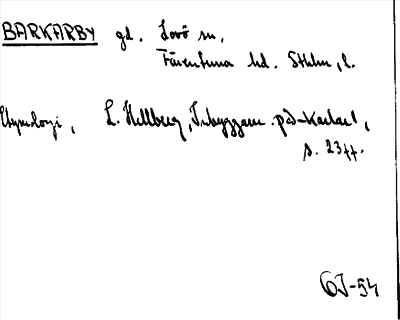 BARKARBY gd. Lovö sn,
Färentuna hd. Sthlm, l.
Etymologi, L. Hellberg, Inbyggarn. på -karlar,
s. 23 ff.
GJ-54